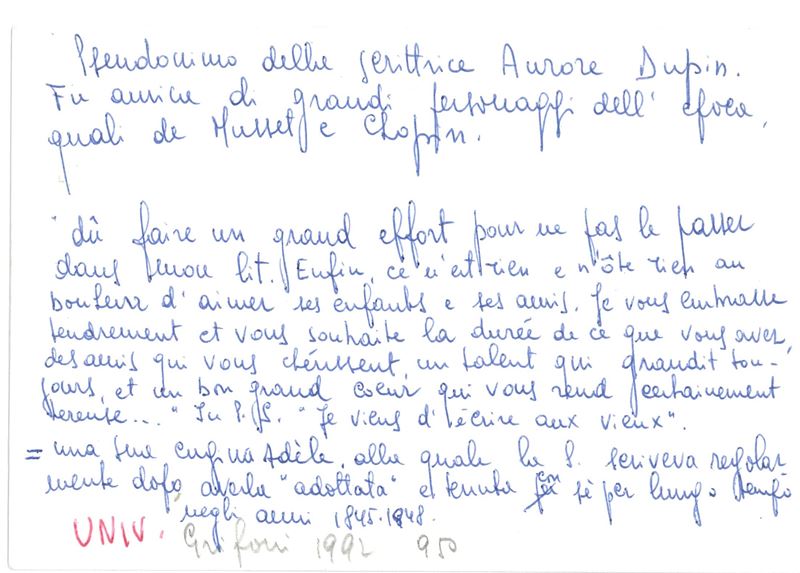 Pseudonimo della scrittrice Aurore Dupin.
Fu amica di grandi personaggi dell' epoca,
quali de Musset e Chopin.
" dû faire un grand effort pour ne pas le passer
dans mon lit. Enfin, ce n'est rien e n'ôte rien au
bonheur d'aimer ses enfants e ses amis. Je vous embrasse
tendrement et vous souhaite la durée de ce que vous avez,
des amis qui vous chérissent, un talent qui grandit tou-
jours, et un bon grand coeur qui vous rend certainement
hereuse..." In P.S. "Je viens d'écrire aux vieux".
= una sua cugina Adèle, alla quale la S. scriveva regolar
mente dopo averla "adottata" e tenuta con sè per lungo tempo
negli anni 1845-1848.
UNIV. Grifoni 1992 950